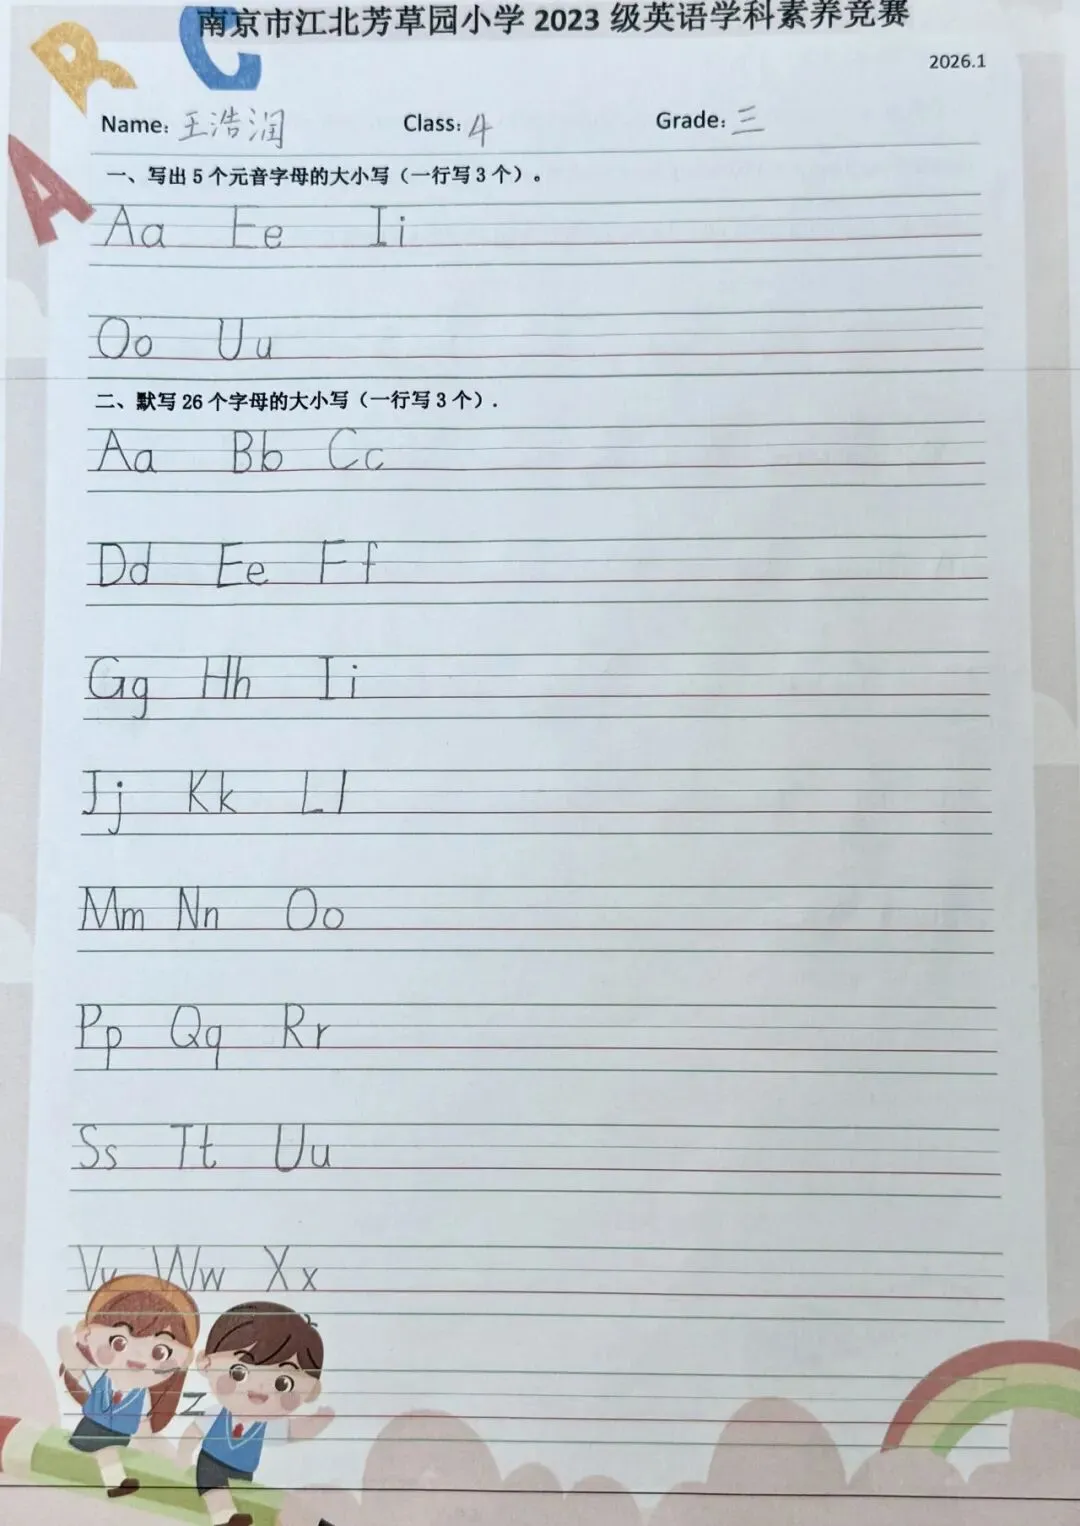 南京市江北芳草园小学 2023 级英语学科素养竞赛
2026.1
Name: 王浩润 Class: 4 Grade: 三
一、写出 5 个元音字母的大小写（一行写 3 个）。
Aa Ee Ii
Oo Uu
二、默写 26 个字母的大小写（一行写 3 个）.
Aa Bb Cc
Dd Ee Ff
Gg Hh Ii
Jj Kk Ll
Mm Nn Oo
Pp Qq Rr
Ss Tt Uu
Vv Ww Xx
Zz